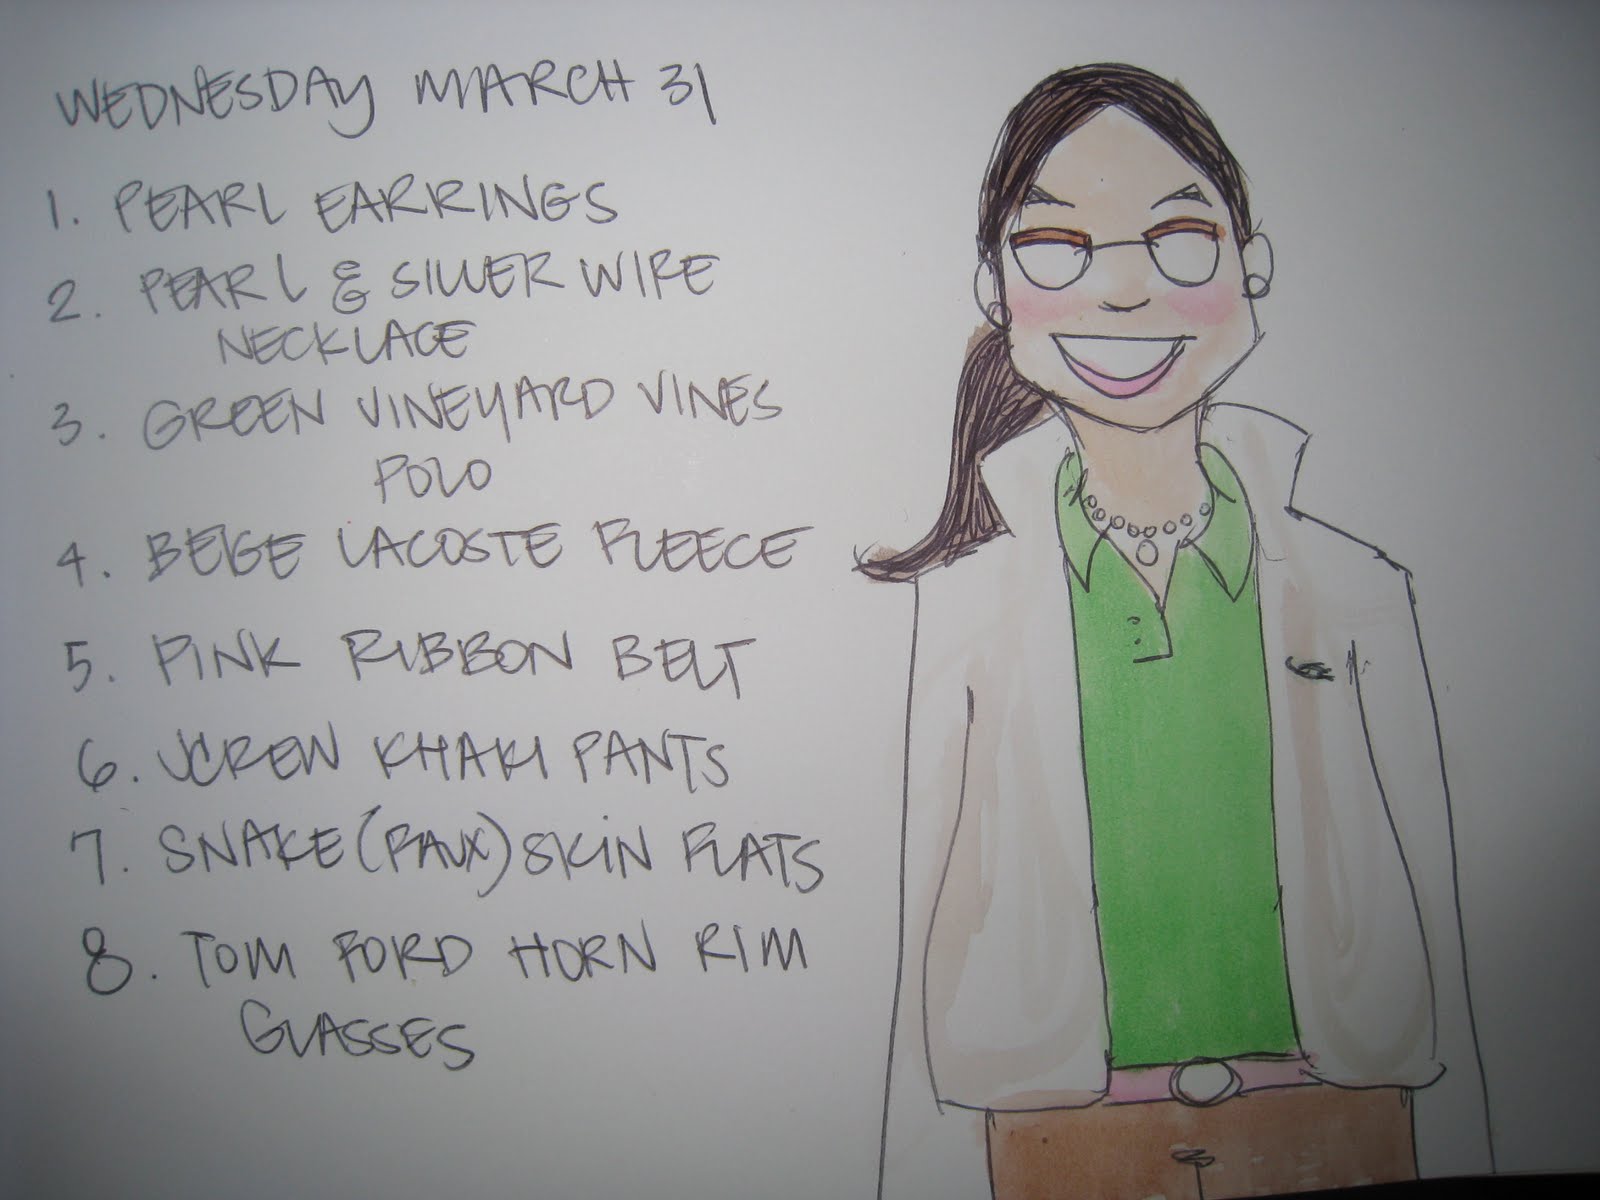 WEDNESDAY MARCH 31
1. PEARL EARRINGS
2. PEARL & SILVER WIRE
NECKLACE
3. GREEN VINEYARD VINES
POLO
4. BEIGE LACOSTE FLEECE
5. PINK RIBBON BELT
6. JCREW KHAKI PANTS
7. SNAKE (FAUX) SKIN FLATS
8. TOM FORD HORN RIM
GLASSES